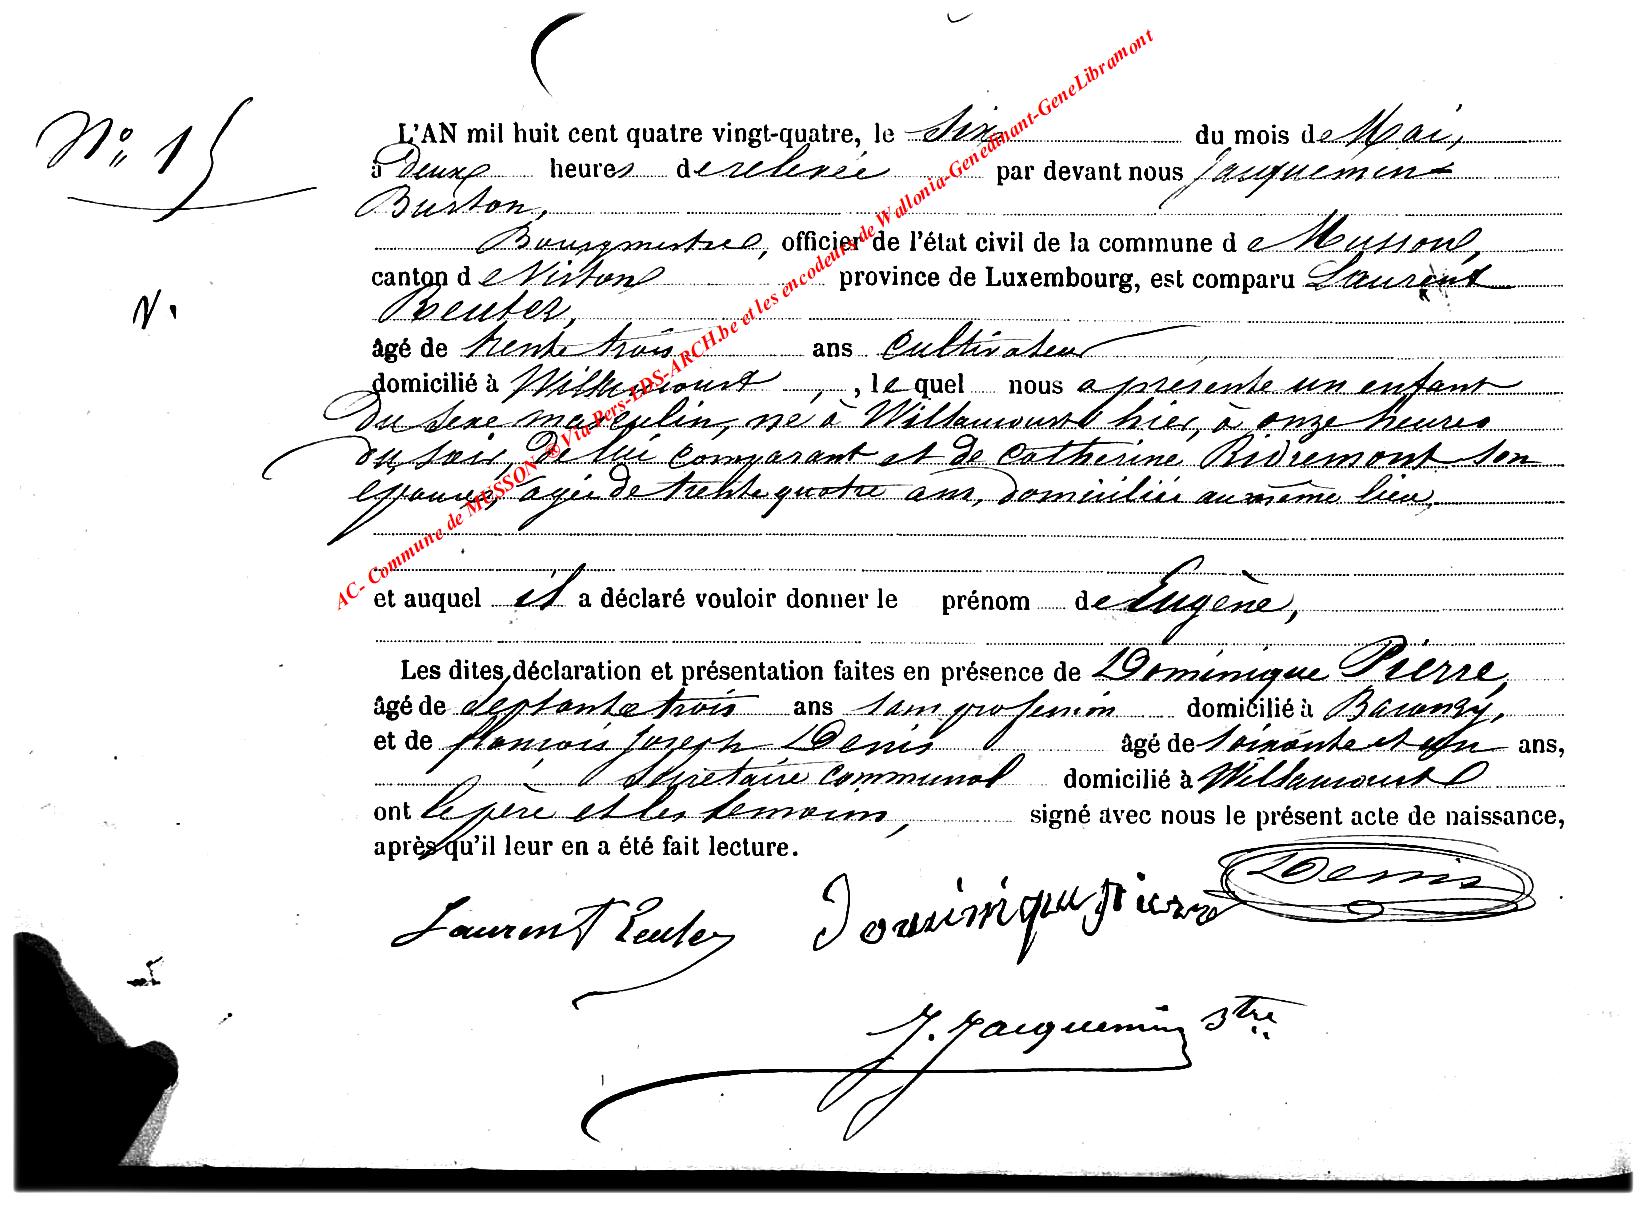 N° 15
L'AN mil huit cent quatre vingt-quatre, le six du mois de Mai,
à deux heures de relevée par devant nous Jacquement
Burton,
Bourgmestre, officier de l'état civil de la commune de Musson,
canton de Virton province de Luxembourg, est comparu Laurent
Reuter,
N.
âgé de trente trois ans cultivateur
domicilié à Willancourt , , lequel nous a présenté un enfant
du sexe masculin, né à Willancourt hier, à onze heures
du soir, de lui comparant et de Catherine Bidremont son
épouse, agée de trente quatre ans, domiciliée au même lieu,
et auquel il a déclaré vouloir donner le prénom de Eugène,
Les dites déclaration et présentation faites en présence de Dominique Pierre,
âgé de septante trois ans sans profession domicilié à Baranzy,
et de françois Joseph Denis âgé de soixante et un ans,
secrétaire communal domicilié à Willancourt
ont le père et les témoins, signé avec nous le présent acte de naissance,
après qu'il leur en a été fait lecture.
Laurent Reuter Dominique pierre Denis
J. Jacquemin Btre
AC- Commune de MUSSON ® Via Pers-LDS-ARCH.be et les encodeurs de Wallonia-Genedinant-GeneLibramont